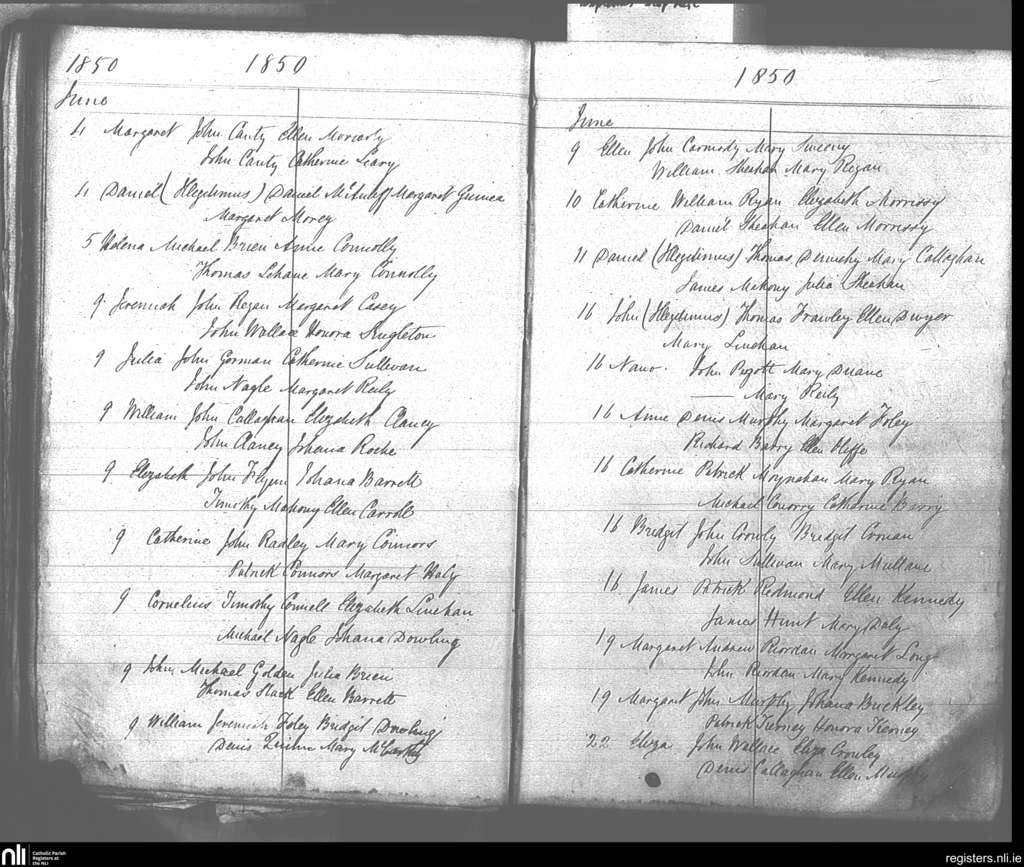 1850 1850
June
4 Margaret John Canty Ellen Moriarty
John Canty Catherine Leary
4 Daniel (Illegitimus) Daniel McAuliff Margaret Guinea
Margaret Morey
5 Helena Michael Brien Anne Connolly
Thomas Lehane Mary Connolly
9 Jeremiah John Regan Margaret Casey
John Wallace Honora Singleton
9 Julia John Gorman Catherine Sullivan
John Nagle Margaret Reily
9 William John Callaghan Elizabeth Clancy
John Clancy Johana Roche
9 Elizabeth John Flynn Johana Barrett
Timothy Mahony Ellen Carroll
9 Catherine John Radley Mary Connors
Patrick Connors Margaret Haly
9 Cornelius Timothy Connell Elizabeth Linehan
Michael Nagle Johana Dowling
9 John Michael Golden Julia Brien
Thomas Slack Ellen Barrett
9 William Jeremiah Foley Bridget Dowling
Denis Mary McCarthy
1850
June
9 Ellen John Carmody Mary Sweeny
William Sheahan Mary Regan
10 Catherine William Ryan Elizabeth Morrissy
Daniel Sheahan Ellen Morrissy
11 Daniel (Illegitimus) Thomas Dennehy Mary Callaghan
James Mahony Julia Sheahan
16 John (Illegitimus) Thomas Frawley Ellen Dwyer
Mary Linehan
16 Nano. John Pigott Mary Duane
—— Mary Reily
16 Anne Denis Murphy Margaret Foley
Richard Barry Ellen Keffe
16 Catherine Patrick Moynahan Mary Ryan
Michael Conorry Catharine Barry
16 Bridget John Crowly Bridget Cronan
John Sullivan Mary Mullane
16 James Patrick Redmond Ellen Kennedy
James Hunt Mary Daly
19 Margaret Andrew Riordan Margaret Long
John Riordan Mary Kennedy
19 Margaret John Murphy Johana Buckley
Patrick Tierney Honora Tierney
22 Eliza John Wallace Eliza Crowley
Denis Callaghan Ellen Murphy
nli Catholic Parish
Registers at
the NLI
registers.nli.ie